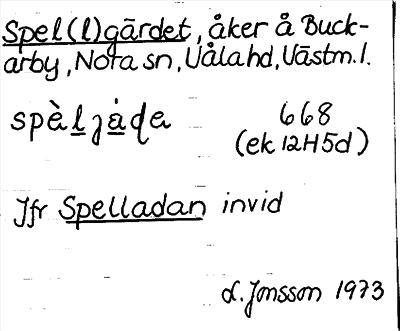 Spel(l)gärdet, åker å Buck-
arby, Nora sn, Våla hd, Västm. l.
spè̀l̲j̀a̲ɖa 668
(ek 12H5d)
Jfr Spelladan invid
L. Jonsson 1973